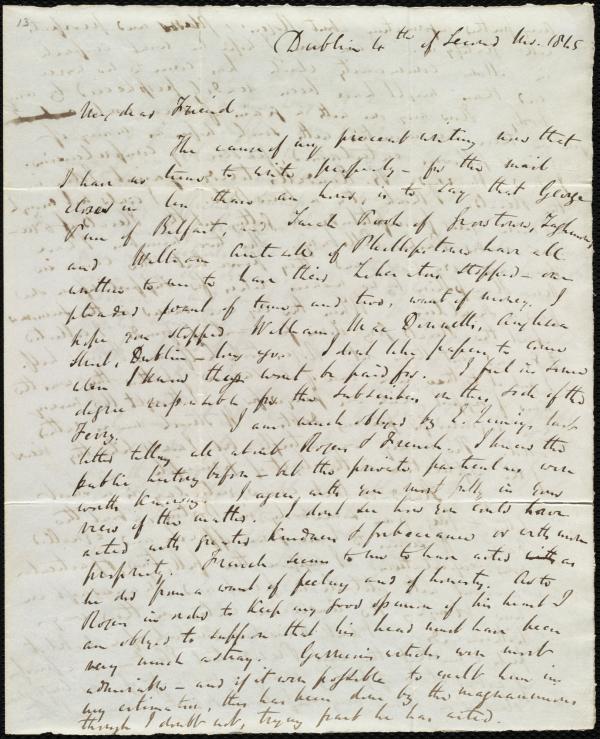 13
Dublin 4th of Second Mo. 1845
My dear Friend
The cause of my present writing now that
I have no time to write properly - for the mail
closes in less than an hour is to say that George
Penn of Belfast, and Sarah Poole of Growtown, Taghmon
and William of Phillipstown have all
written to me to have their Liberators stopped - one
pleaded want of time - and two, want of money. I
hope you stopped William Mac Donnell's, Anglesea
Street, Dublin - long ago. I dont like papers to come
when I know they wont be paid for. I feel in some
degree responsible for the subscribers on this side of the
Ferry. I am much obliged by E. Quincy's last
letter telling all about Rogers & French. I knew the
public history before - but the private particulars were
worth knowing. I agree with you most fully in your
view of the matter. I dont see how you could have
acted with greater kindness & forbearance or with more
propriety. French seems to me to have acted as
he did from a want of feeling and of honesty. As to
Rogers in order to keep my good opinion of his heart I
am obliged to suppose that his head must have been
very much astray. Garrison's articles were most
admirable - and if it were possible to exalt him in
my estimation, this has been done by the magnanimous
though I doubt not, trying part he has acted.